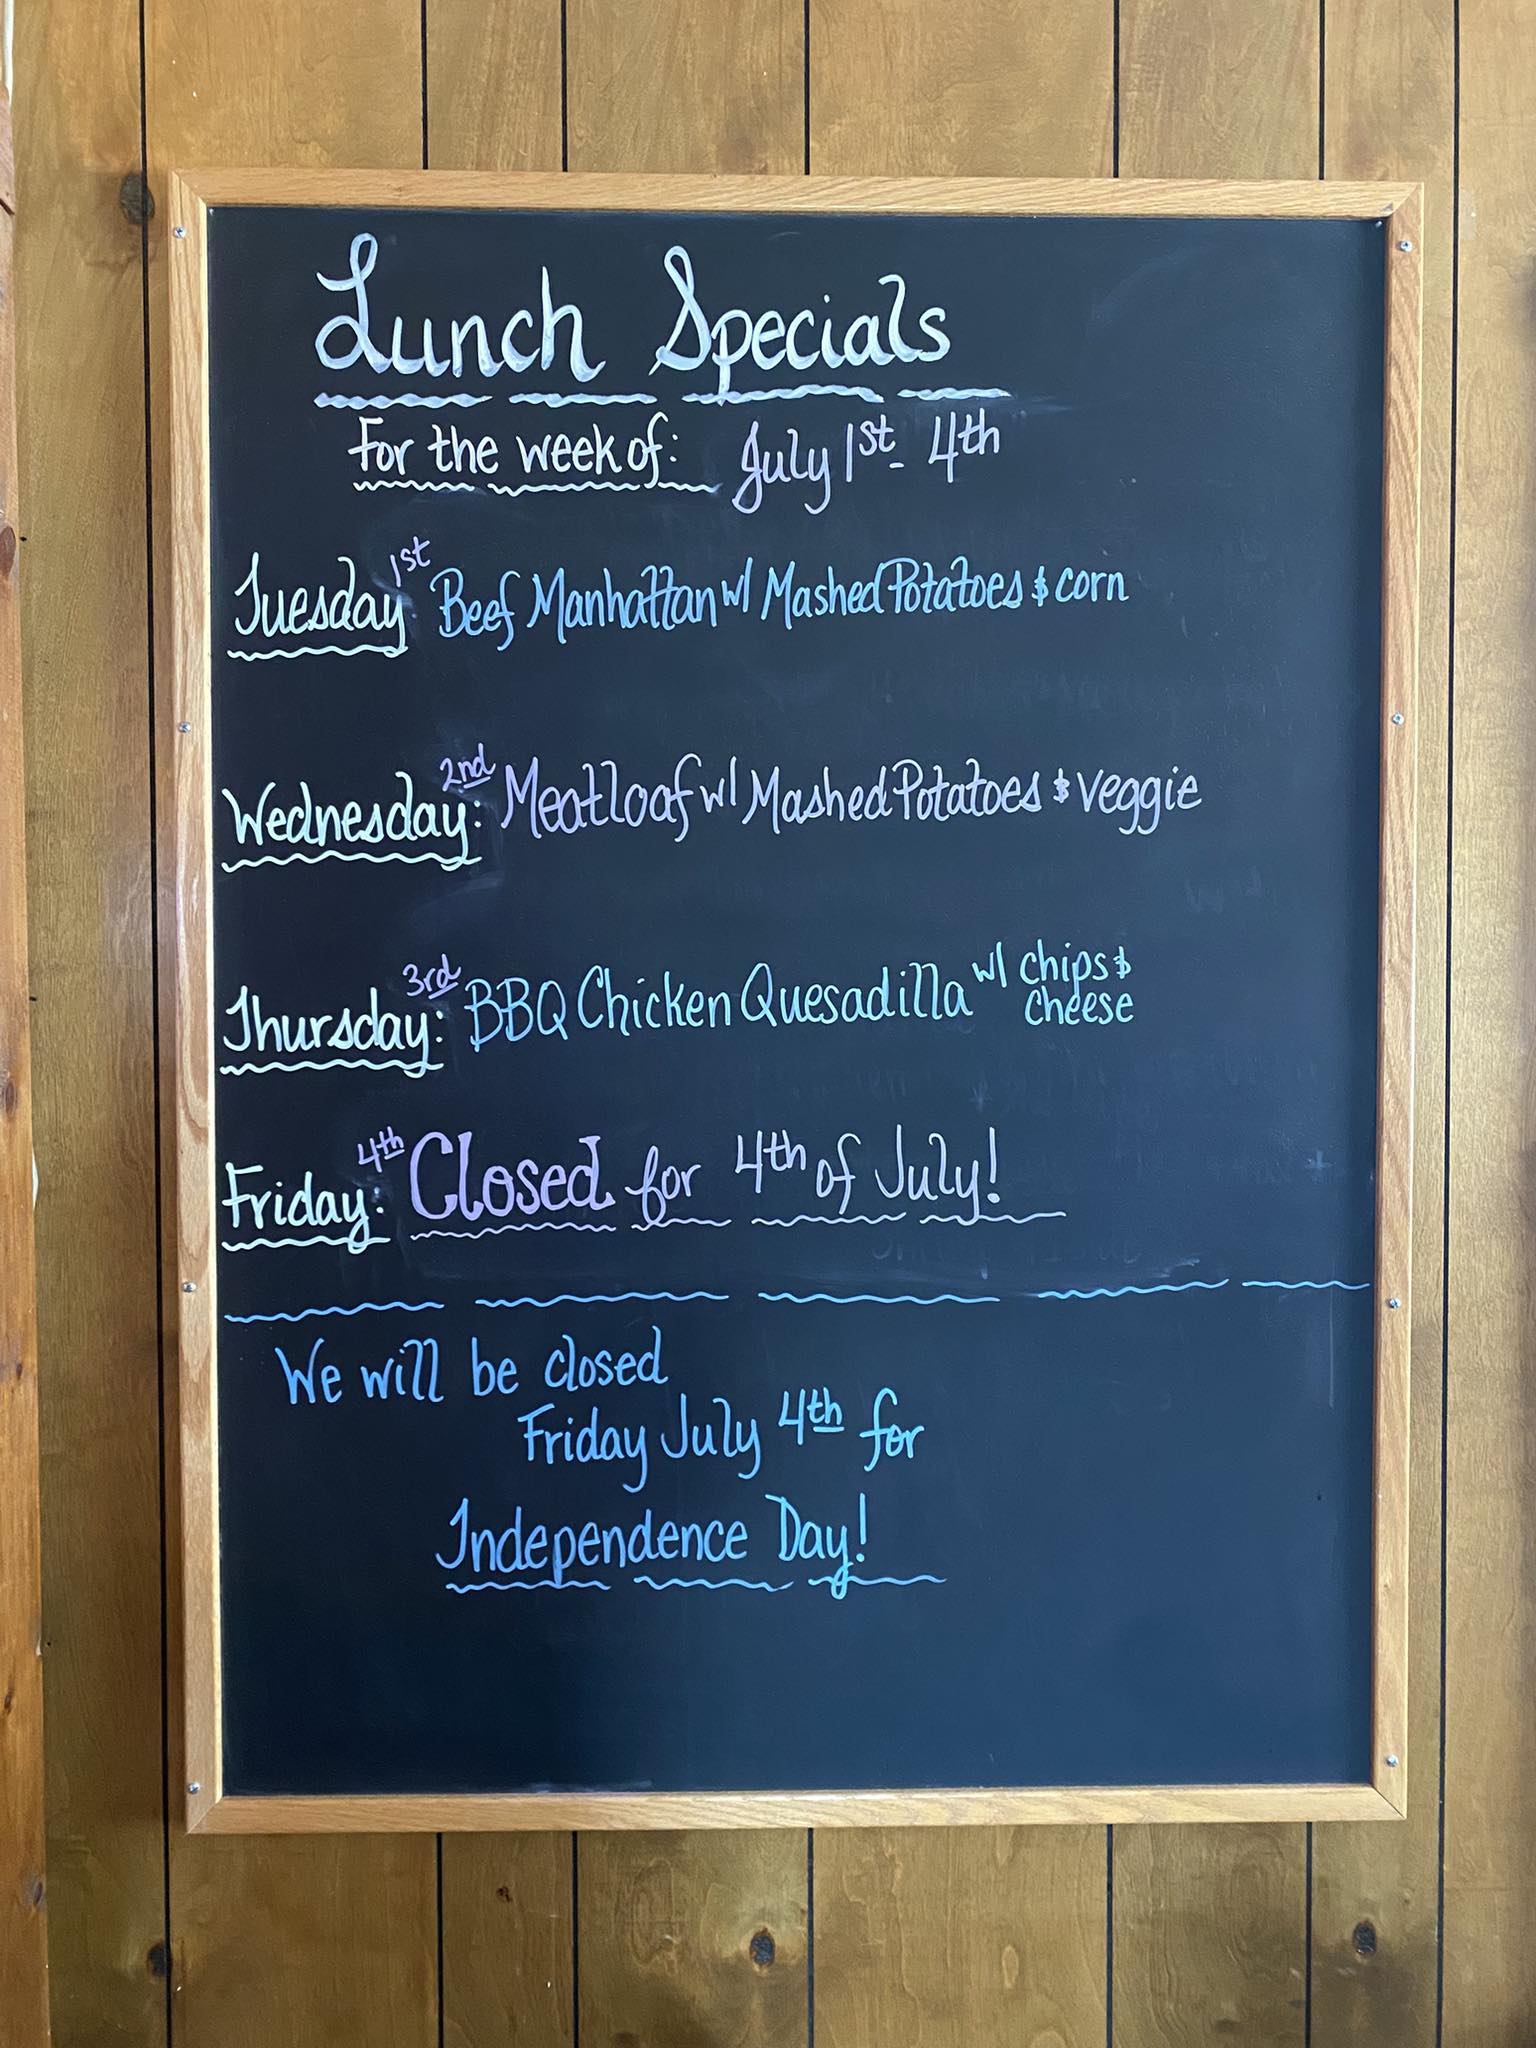 Lunch Specials
For the week of: July 1st - 4th
Tuesday: 1st Beef Manhattan w/ Mashed Potatoes & corn
Wednesday: 2nd Meatloaf w/ Mashed Potatoes & veggie
Thursday: 3rd BBQ Chicken Quesadilla w/ chips &
cheese
Friday: 4th Closed for 4th of July!
We will be closed
Friday July 4th for
Independence Day!